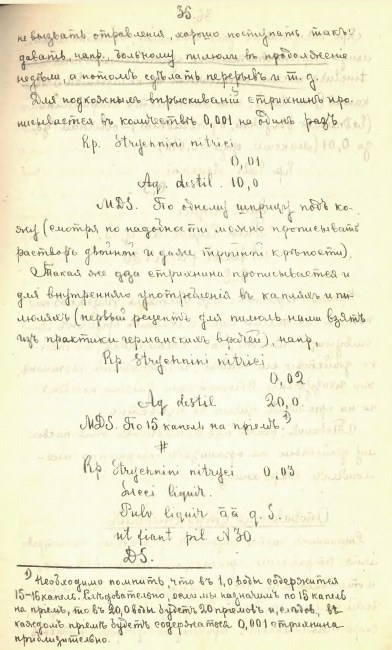 35.
не вызвать отравленія, хорошо поступать такъ:
давать, напр., больному пилюли въ продолженіе
недѣли, а потомъ сдѣлать перерывъ и т. д.
Для подкожныхъ впрыскиваній стрихнинъ про-
писывается въ количествѣ 0,001 на одинъ разъ
Rp. Strychnini nitrici
0,01
Aq. destil. 10,0
MDS. По одному шприцу подъ ко-
жу (смотря по надобности можно прописывать
растворъ двойной и даже тройной крѣпости).
Такая же доза стрихнина прописывается и
для внутренняго употребленія въ капляхъ и пи-
люляхъ (первый рецептъ для пилюль нами взятъ
изъ практики германскихъ врачей), напр.
Rp Strychnini nitrici
0,02
Aq destil 20,0
MDS. По 15 капель на пріемъ. 1)
#
Rp Strychnini nitrici 0,03
Succi liquir.
Pulv. liquir āā q. S.
ut fiant pil N30.
DS.
1) Необходимо помнить, что въ 1,0 воды содержится
15-16 капель. Слѣдовательно, если мы назначимъ по 15 капель
на пріемъ, то въ 20,0 воды будетъ 20 пріемовъ и, слѣдов., въ
каждомъ пріемѣ будетъ содержаться 0,001 стрихнина
приблизительно.